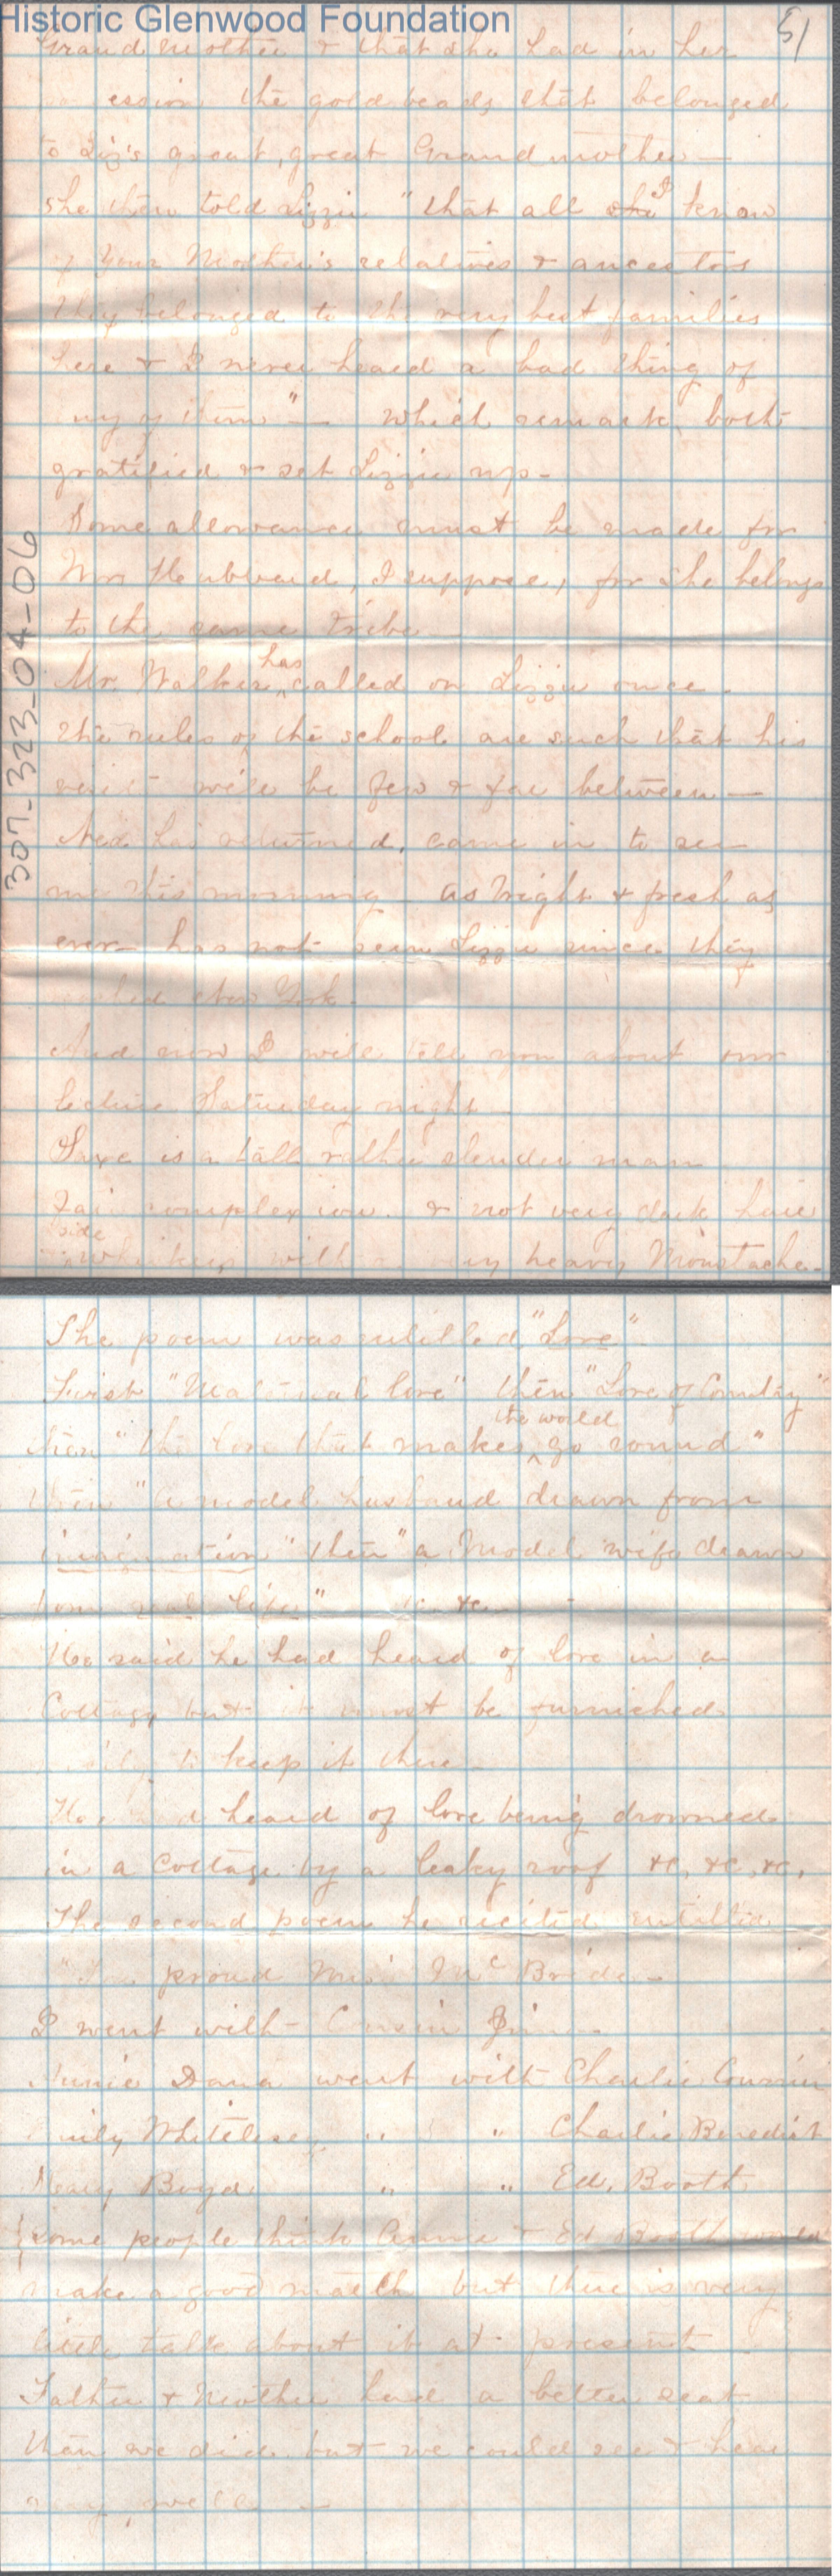 Historic Glenwood Foundation
5/
Grand mother & that she had in her
ession the gold beads that belonged
to Liz's great, great Grand mother —
she then told Lizzie "that all she I know
of your Mother's relatives & ancestors
they belonged to the very best families
here & I never heard a bad thing of
any of them" — which remark, both
gratified & set Lizzie up -
Some allowance must be made for
Mrs Hubbard, I suppose, for she belongs
to the same tribe
Mr. Walker has called on Lizzie once -
The rules of the school are such that his
visits will be few & far between —
Ned has returned, came in to see
me this morning as bright & fresh as
ever - has not seen Lizzie since they
New York -
And now I will tell you about our
lecture Saturday night -
Saxe is a tall rather slender man
Fair complexion. & not very dark hair
side whiskers with very heavy Moustache -
307-323-04-06
The poem was entitled "Love" -
First "Maternal love" then "Love of Country"
then "the love that makes the world go round"
then "A model husband drawn from
imagination" then "a Model wife drawn
from real life" &c &c -
He said he had heard of love in a
Cottage but it must be furnished
to keep it there -
He had heard of love being drowned
in a Cottage by a leaky roof &c, &c, &c,
The second poem he recited entitled
"The proud Miss McBride -
I went with Cousin
Annie Dana went with Charlie Cousin
Emily Whittlesey " " Charlie Benedict
Mary Boyd " " Ed. Booth
Some people think Annie & Ed Booth would
make a good match but there is very
little talk about it at present -
Father & Mother had a better seat
than we did but we could see & hear
very well —